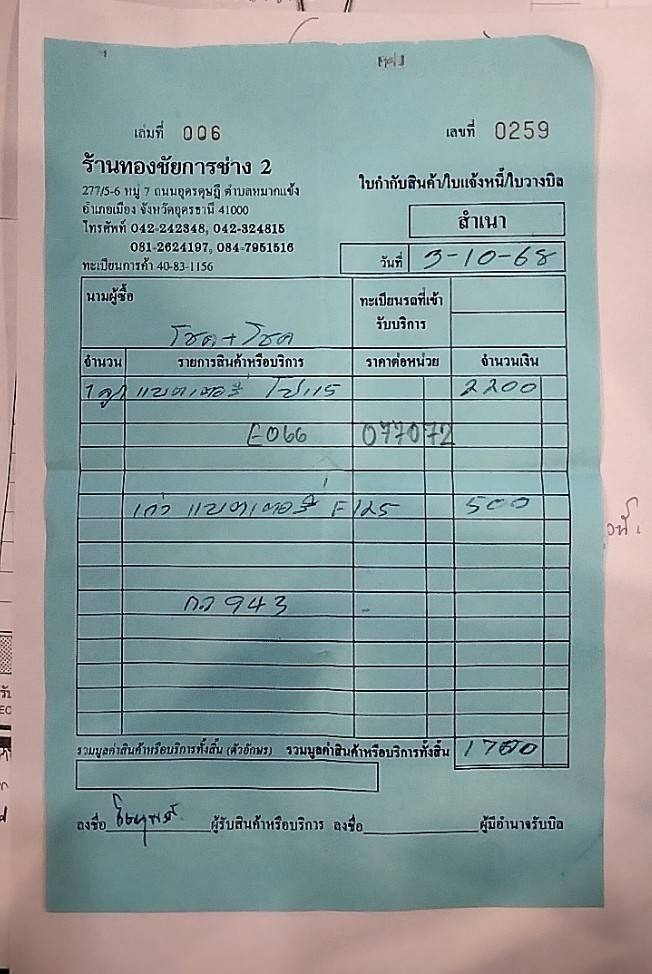 เล่มที่ 006 เลขที่ 0259
ร้านทองชัยการช่าง 2
277/5-6 หมู่ 7 ถนนอุดรดุษฎี ตำบลหมากแข้ง
อำเภอเมือง จังหวัดอุดรธานี 41000
โทรศัพท์ 042-242348, 042-324815
081-2624197, 084-7951516
ทะเบียนการค้า 40-83-1156
ใบกำกับสินค้า/ใบแจ้งหนี้/ใบวางบิล
สำเนา
วันที่ 3-10-68
นามผู้ซื้อ
โชค+โชค
ทะเบียนรถที่เข้า
รับบริการ
จำนวน รายการสินค้าหรือบริการ ราคาต่อหน่วย จำนวนเงิน
1 ลูก แบตเตอรี่ 2200
E066 077072
เก่า แบตเตอรี่ F125 500
กว 943
รวมมูลค่าสินค้าหรือบริการทั้งสิ้น (ตัวอักษร) รวมมูลค่าสินค้าหรือบริการทั้งสิ้น 1700
ลงชื่อ ผู้รับสินค้าหรือบริการ ลงชื่อ ผู้มีอำนาจรับบิล